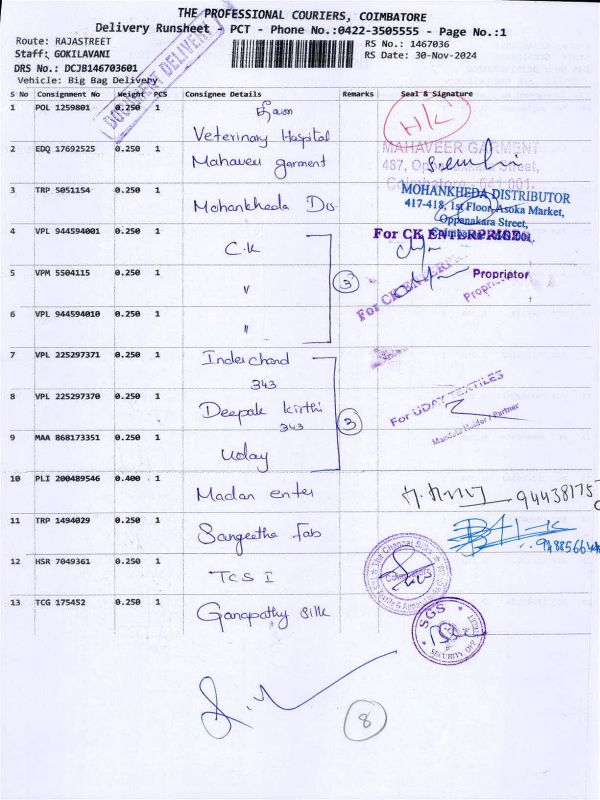 THE PROFESSIONAL COURIERS, COIMBATORE
Delivery Runsheet - PCT - Phone No.:0422-3505555 - Page No.:1
Route: RAJASTREET
RS No.: 1467036
Staff: GOKILAVANI
RS Date: 30-Nov-2024
DRS No.: DCJB146703601
Vehicle: Big Bag Delivery
DOCUMENT DELIVERY
S No Consignment No Weight PCS Consignee Details Remarks Seal & Signature
1 POL 1259801 0.250 1
Veterinary Hospital
2 EDQ 17692525 0.250 1 Mahaveer garment
MAHAVEER GARMENT
487, Oppanakara Street,
Coimbatore - 641 001.
3 TRP 5051154 0.250 1 Mohankheda Dis
MOHANKHEDA DISTRIBUTOR
417-418, 1st Floor, Asoka Market,
Oppanakara Street,
4 VPL 944594001 0.250 1 C.K
For CK ENTERPRISE
5 VPM 5504115 0.250 1 "
3
For CK ENTERPRISE
Proprietor
6 VPL 944594010 0.250 1 "
7 VPL 225297371 0.250 1 Inderchand
343
8 VPL 225297370 0.250 1 Deepak Kirthi
343
3
For UDAY TEXTILES
Mandate Holder / Partner
9 MAA 868173351 0.250 1 Uday
10 PLI 200489546 0.400 1 Madan enter
11 TRP 1494029 0.250 1 Sangeetha Fab
12 HSR 7049361 0.250 1 TCS I
The Chennai Silks
Coimbatore
13 TCG 175452 0.250 1 Ganapathy Silk
SGS
SECURITY OFF
8